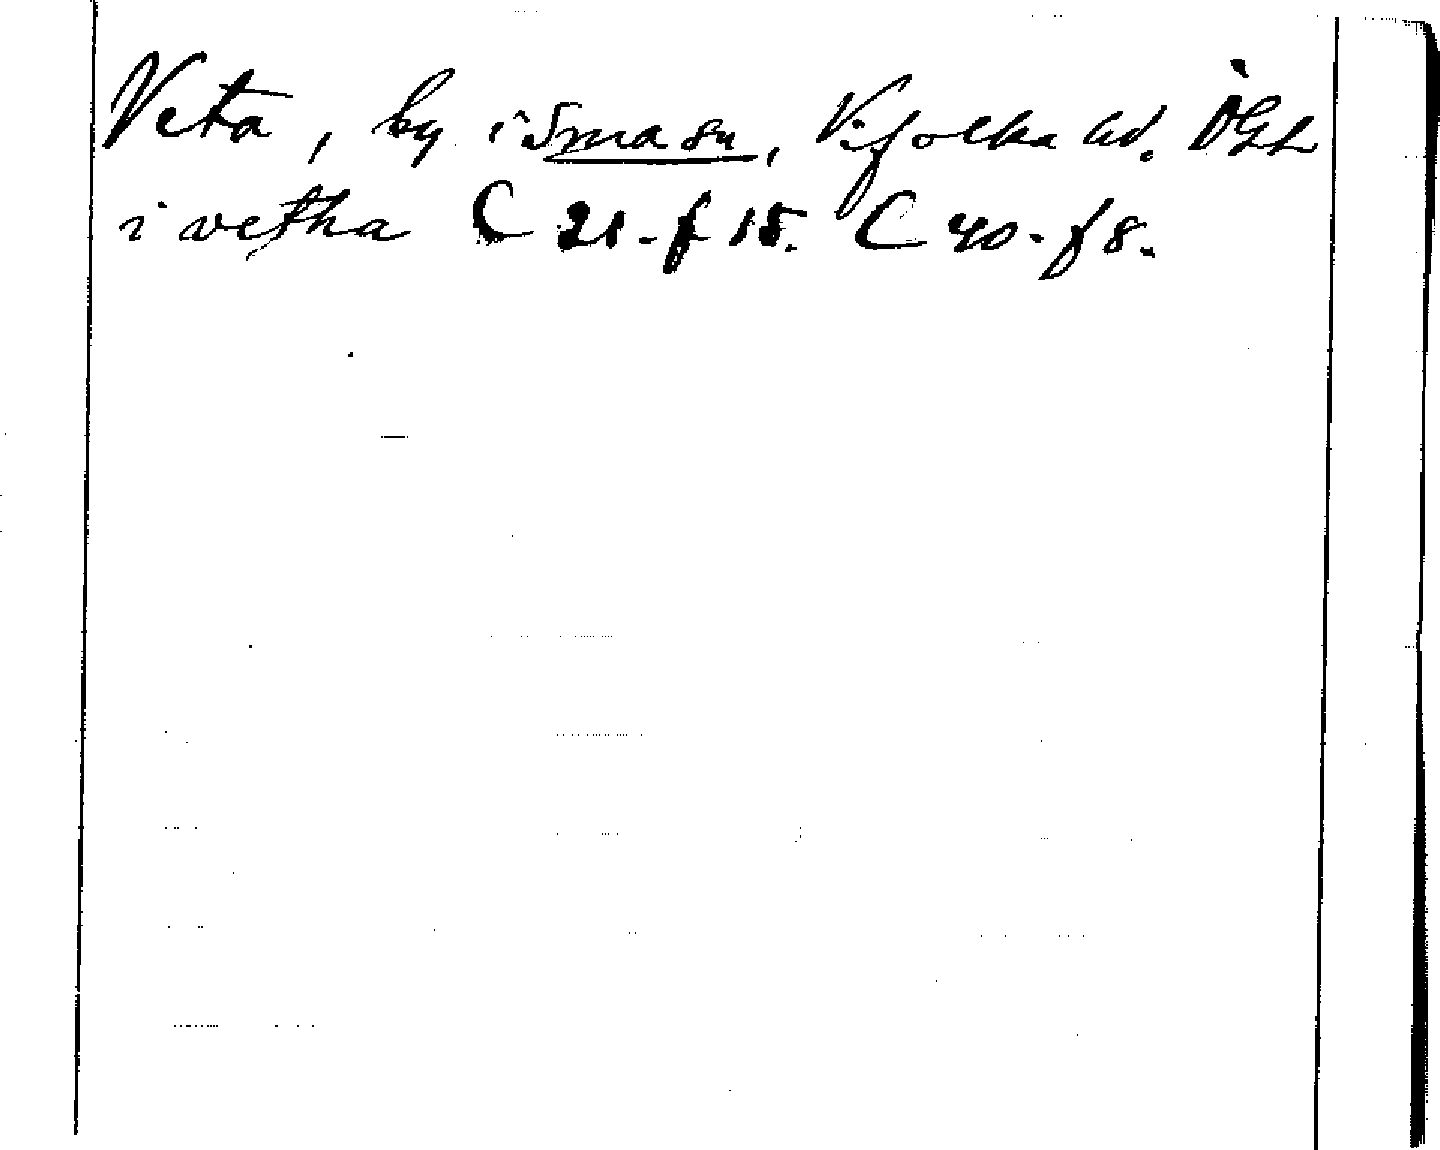 Veta, by i Smasn, Vifolka hd. ÖGL
i vetha C 21. f 15. C 40. f 8.